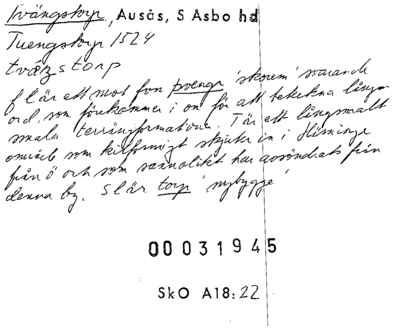 Tvängstorp, Ausås, S Åsbo hd
Tuengstorp 1524
tvæzstorp
fl är ett mot fvn þvengr 'skorem' svarande
ord, som förekommer i on för att beteckna långa
smala terrängformationer. T är ett långsmalt
område som kilformigt skjuter in i Höminge
från ö och som sannolikt har avsöndrats från
denna by. Sl är torp 'nybygge'
00031945
SkO A18:22